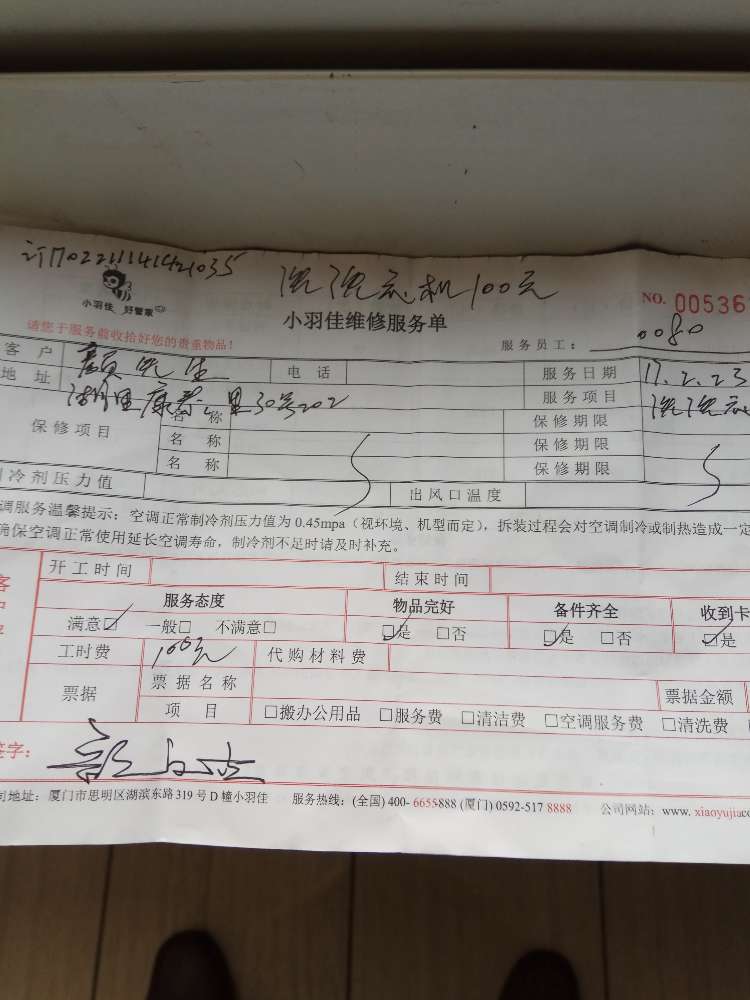 订门0221114142 1035
洗洗衣机100元
小羽佳 好管家
NO. 00536
小羽佳维修服务单
请您于服务前收拾好您的贵重物品！
服务员工： 0080
客 户 颜先生 电 话 服务日期 17.2.23
地 址 康泰里30号202 服务项目 洗洗衣
保修项目 名 称 保修期限
名 称 保修期限
名 称 保修期限
冷剂压力值 出风口温度
调服务温馨提示：空调正常制冷剂压力值为 0.45mpa（视环境、机型而定），拆装过程会对空调制冷或制热造成一定
确保空调正常使用延长空调寿命，制冷剂不足时请及时补充。
开工时间 结束时间
服务态度 物品完好 备件齐全 收到卡
满意☑ 一般□ 不满意□ ☑是 □否 ☑是 □否 ☑是
工时费 100元 代购材料费
票据 票据名称 票据金额
项 目 □搬办公用品 □服务费 □清洁费 □空调服务费 □清洗费
签字：
司地址：厦门市思明区湖滨东路 319 号 D 幢小羽佳 服务热线：(全国) 400- 6655888 (厦门) 0592-517 8888 公司网站：www. xiaoyujia